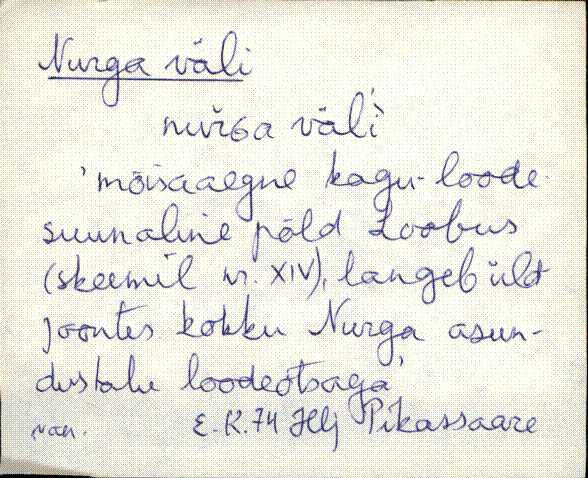 Nurga väli
nuřGa väl̀i
'mõisaaegne kagu-loode-
suunaline põld Loobus
(skeemil nr. XIV), langeb üld-
joontes kokku Nurga asun-
dustalu loodeotsaga'
E.K. 74 Hlj Pikassaare